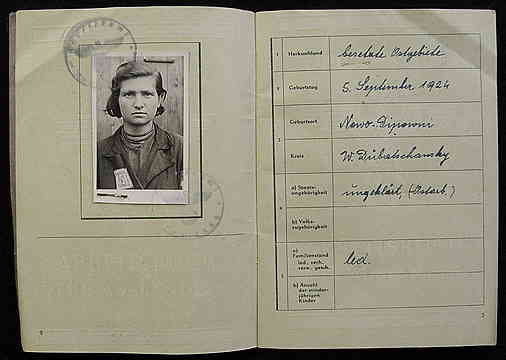 1 Herkunftsland besetzte Ostgebiete
2 Geburtstag 5. September 1924
Geburtsort Nowo-
3
Kreis W. Dubatschansky
4 a) Staats-
angehörigkeit ungeklärt, (Ostarb.)
b) Volks-
zugehörigkeit
5 a)
Familienstand led.
led., verh.,
verw., gesch.
b) Anzahl
der minder-
jährigen
Kinder
5